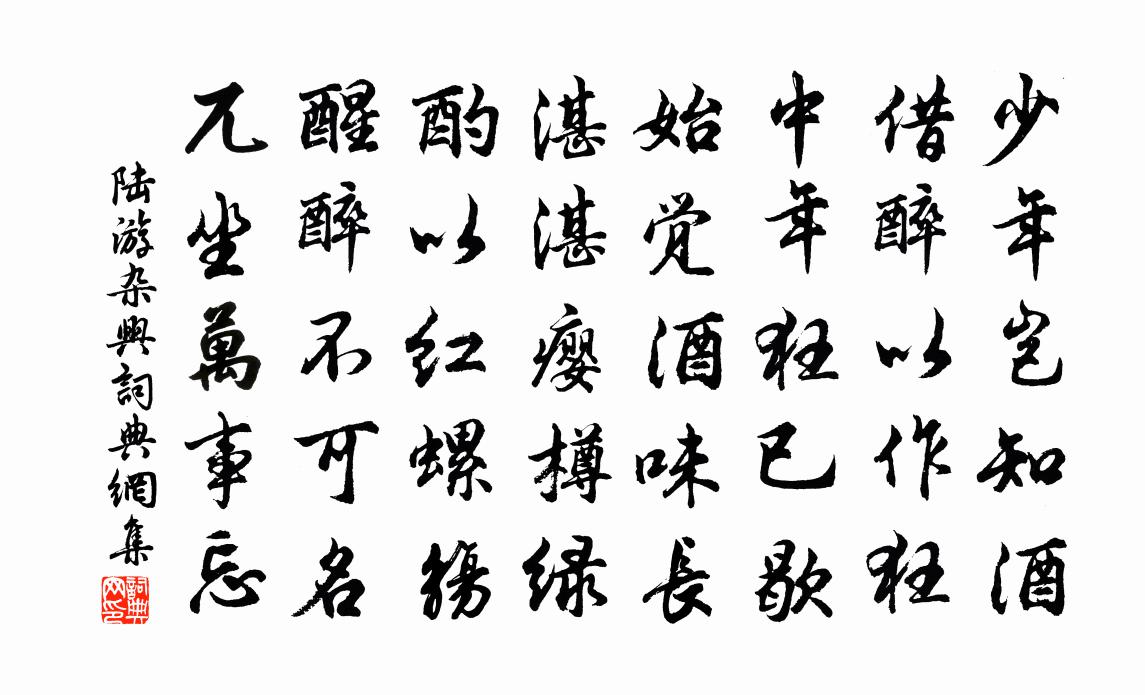 少年岂知酒
借醉以作狂
中年狂已歇
始觉酒味長
湛湛瘿樽緑
酌以红螺觞
醒醉不可名
兀坐萬事忘
陆游杂興詞典網集
詞典網印